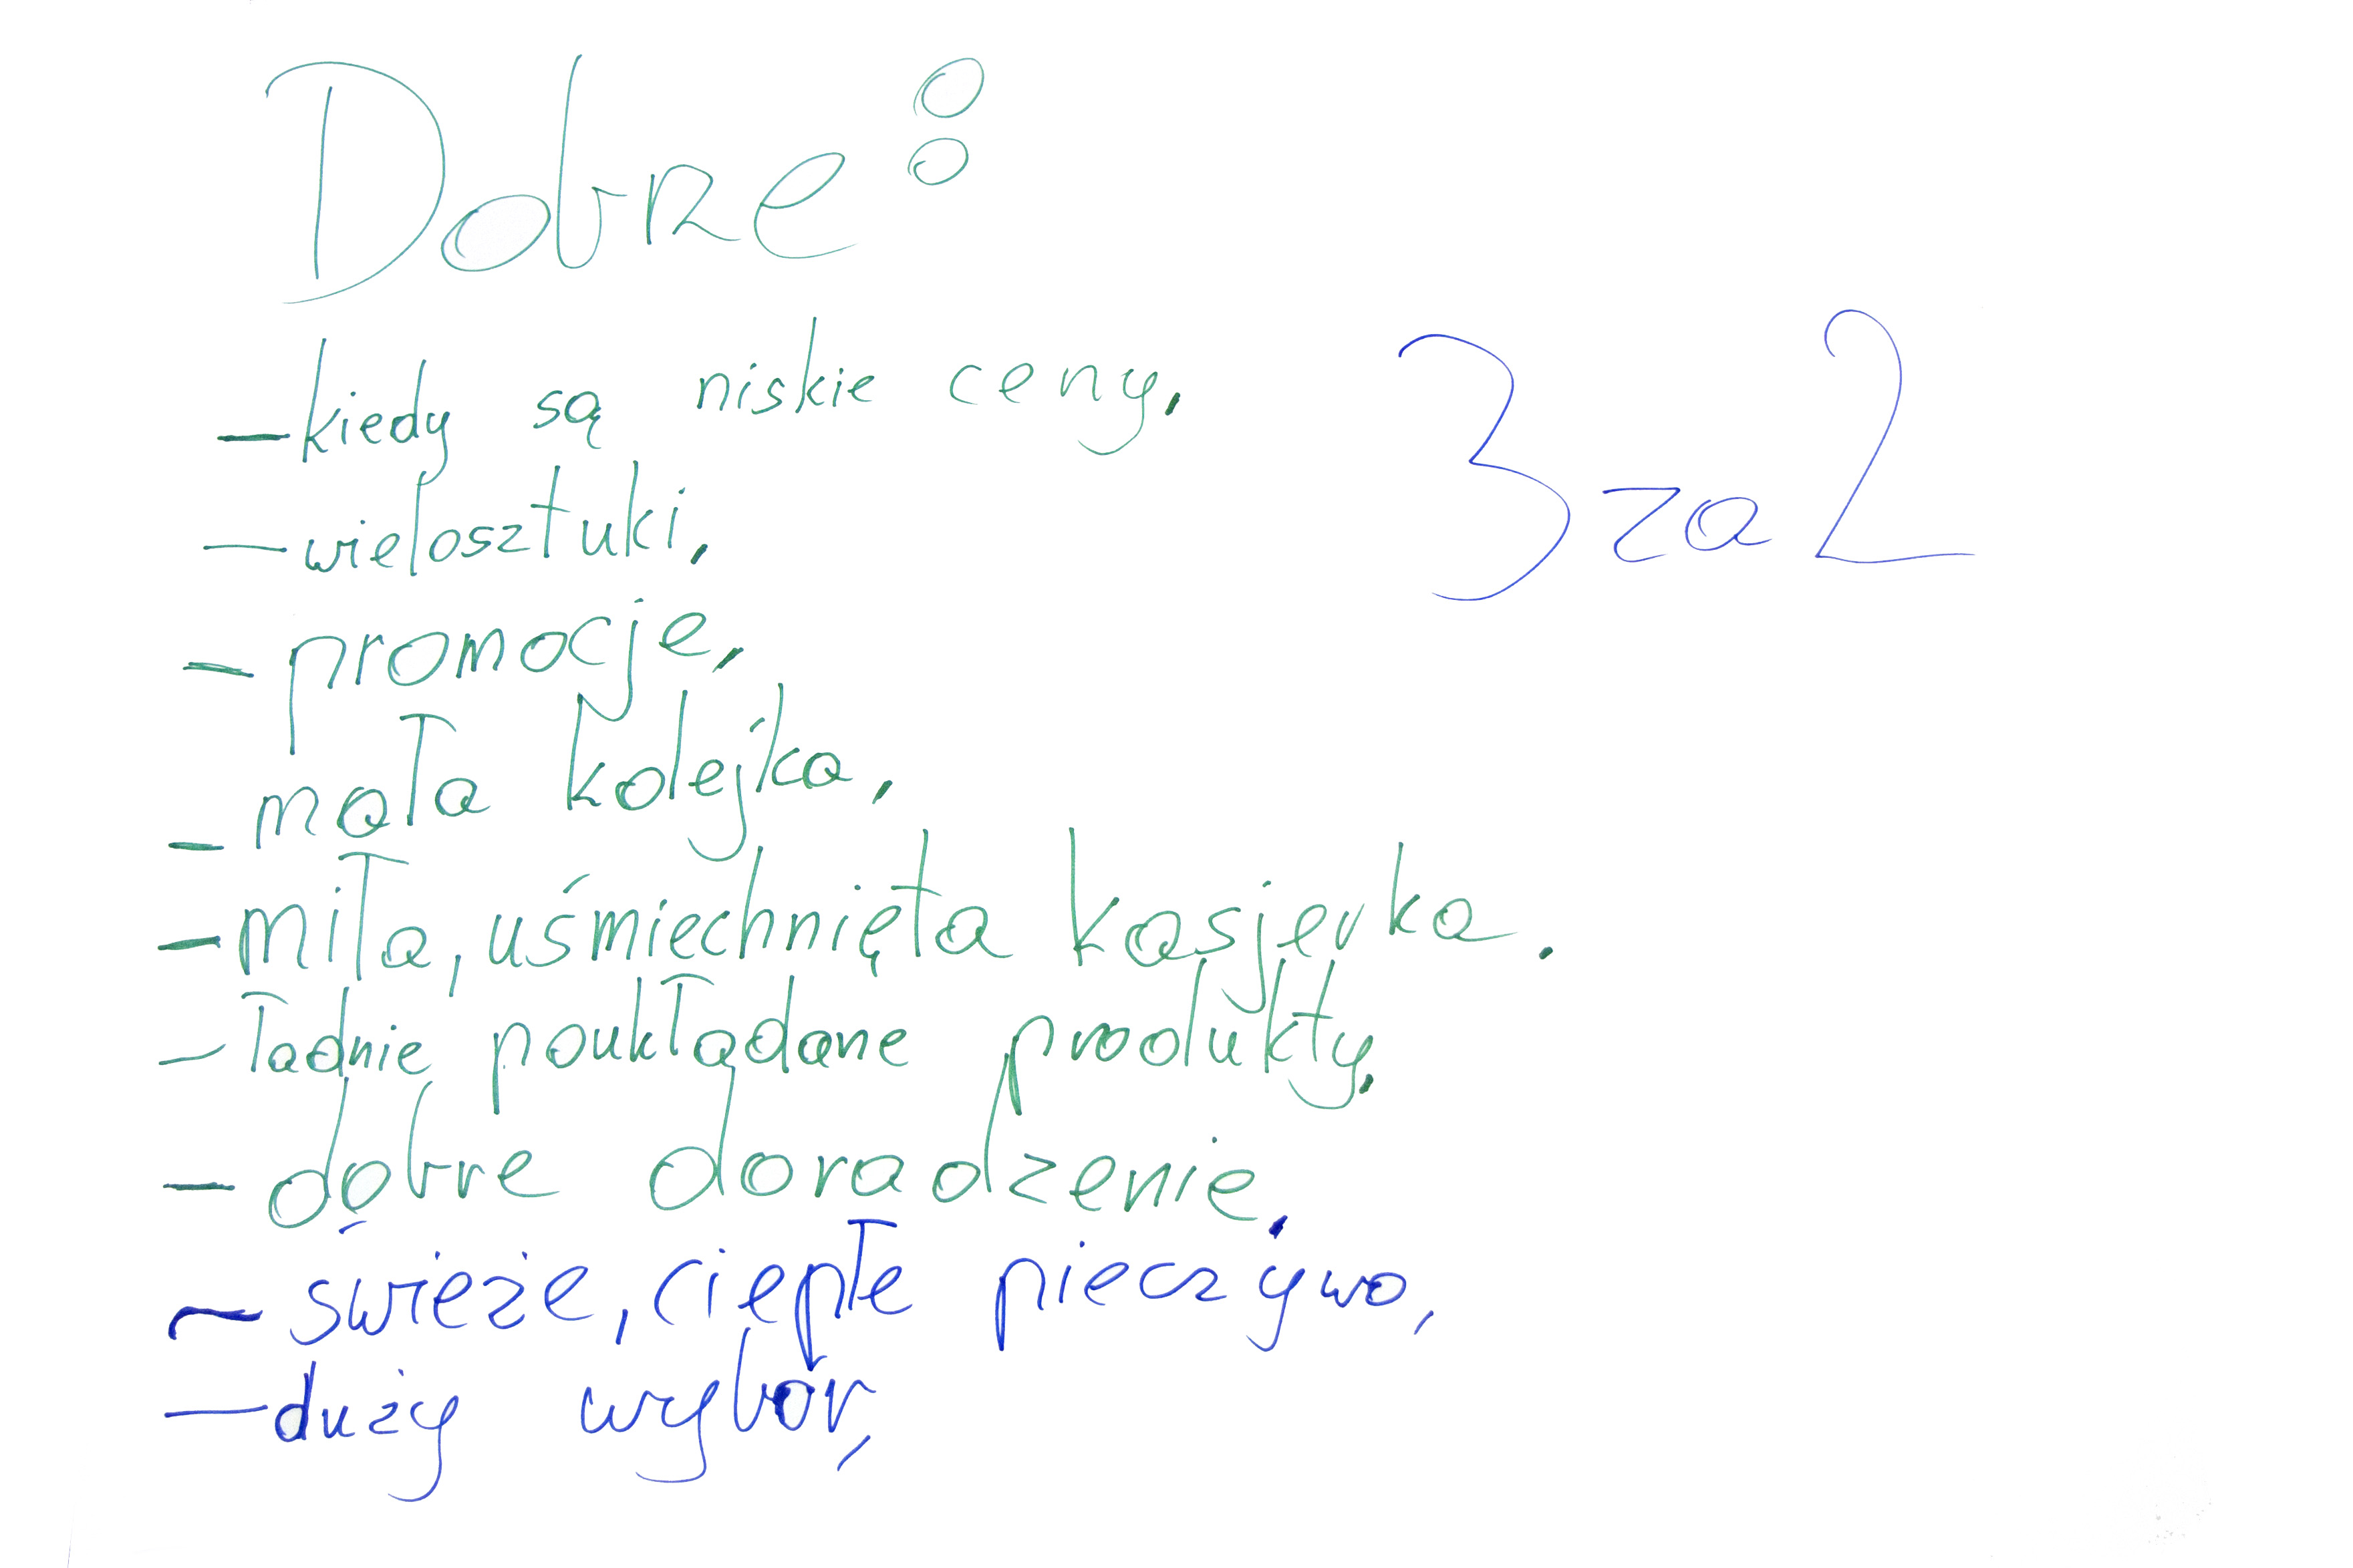 Dobre:
-kiedy są niskie ceny,
-wielosztuki,
-promocje,
-mała kolejka,
-miła, uśmiechnięta kasjerka.
-ładnie poukładane produkty,
-dobre doradzenie,
-świeże, ciepłe pieczywo,
-duży wybor,
3 za 2